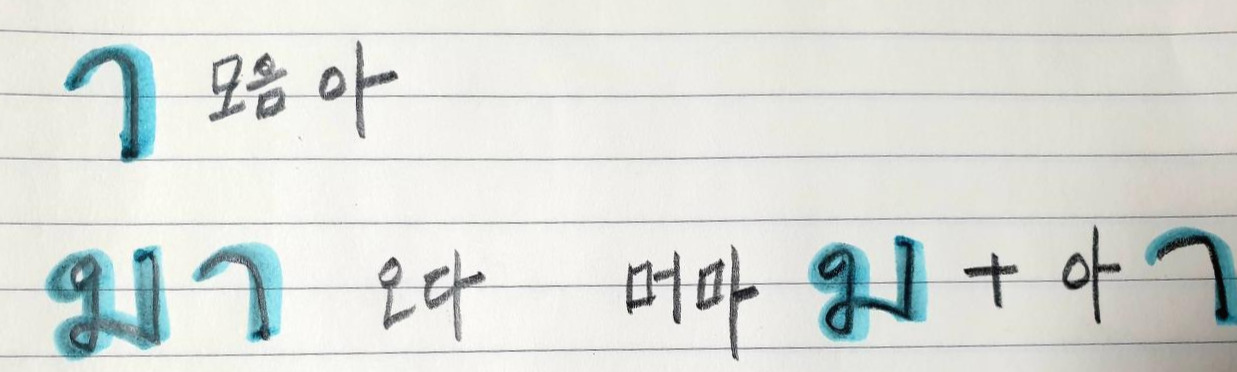 า 모음 아
มา 오다 머마 ม + 아 า